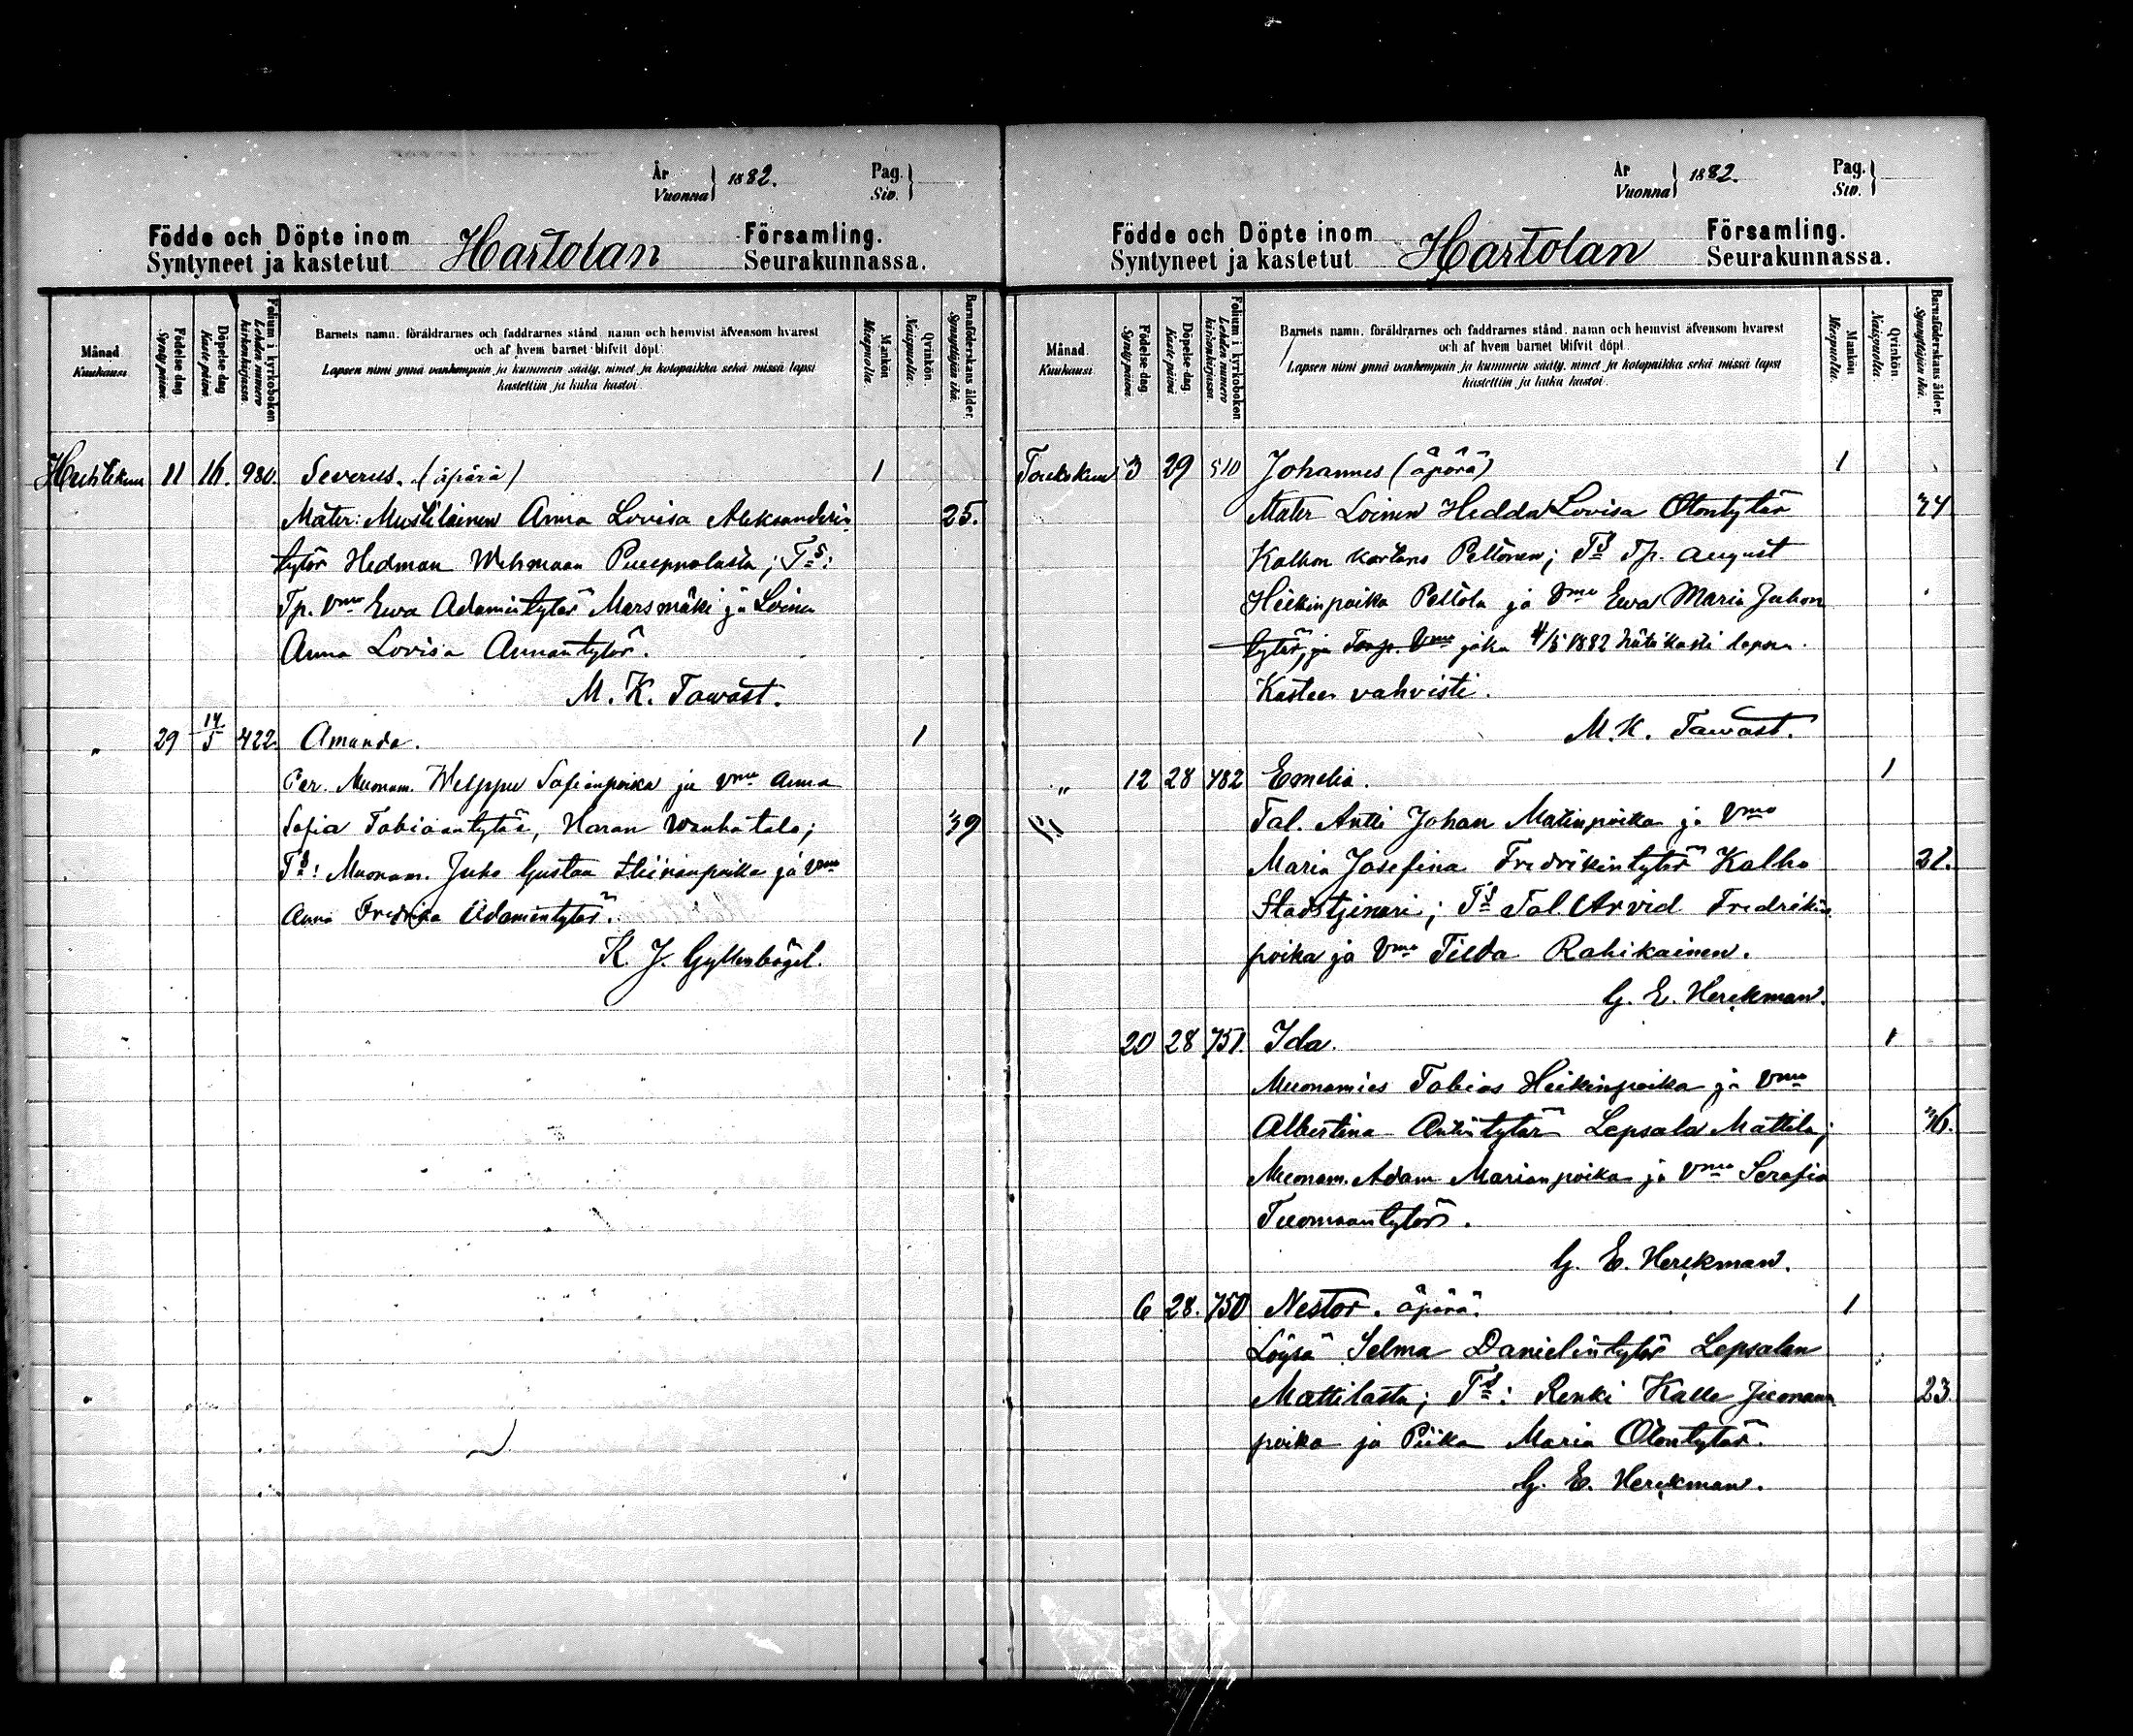 År
Vuonna 1882.
Pag.
Siv.
Födde och Döpte inom
Syntyneet ja kastetut Hartolan Församling.
Seurakunnassa.
Månad.
Kuukausi.
Födelse dag.
Synty päivä.
Döpelse dag.
Kaste päivä
Folium i kyrkoboken
Lehden numero kirkonkirjassa.
Barnets namn, föräldrarnes och faddrarnes stånd, namn och hemvist äfvensom hvarest
och af hvem barnet blifvit döpt.
Lapsen nimi ynnä vanhempain ja kummein sääty, nimet ja kotopaikka sekä missä lapsi
kastettiin ja kuka kastoi.
Mankön
Miespuolia.
Qvinkön.
Naispuolia.
Barnaföderskans ålder.
Synnyttäjän ikä.
Huhtikuu 11 16. 980. Severus. (äpärä) 1
Mater: Mustilainen Anna Lovisa Aleksanderin 25.
tytär Hedman Wehmaan Puuppolasta; Ts:
Tp. Vmo Ewa Adamintytär Marsmäki ja Loinen
Anna Lovisa Annantytär.
M. K. Tawast.
" 29 14/5 422. Amanda. 1
Par. Muonam. Welppu Sofianpoika ja vmo Anna
Sofia Tobiaantytär, Haran Wanhatalo; 39
Ts: Muonam. Juho Gustaa Heinanpoika ja vmo
Anna Fredrika Adamintytär.
K. J. Gyllenbögel.
År
Vuonna 1882.
Pag.
Siv.
Födde och Döpte inom
Syntyneet ja kastetut Hartolan Församling.
Seurakunnassa.
Månad.
Kuukausi.
Födelse dag.
Synty päivä.
Döpelse dag.
Kaste päivä
Folium i kyrkoboken
Lehden numero kirkonkirjassa.
Barnets namn, föräldrarnes och faddrarnes stånd, namn och hemvist äfvensom hvarest
och af hvem barnet blifvit döpt.
Lapsen nimi ynnä vanhempain ja kummein sääty, nimet ja kotopaikka sekä missä lapsi
kastettiin ja kuka kastoi.
Mankön
Miespuolia.
Qvinkön.
Naispuolia.
Barnaföderskans ålder.
Synnyttäjän ikä.
Toukokuu 3 29 510 Johannes (äpärä) 1
Mater Loinen Hedda Lovisa Otontytär 34
Kalhon kartano Peltonen; Ts Tp. August
Heikinpoika Peltola ja Vmo Ewa Maria Juhon
tytär, ja Torp. Vmo joka 4/5 1882 hätä kasti lapsen.
Kasteen vahvisti.
M. K. Tawast.
" 12 28 482 Emelia. 1
Tal. Antti Johan Matinpoika ja Vmo
Maria Josefina Fredrikintytär Kalho 22.
Stadstjinari; Ts Tal. Arvid Fredrikin
poika ja Vmo Tilda Rahikainen.
G. E. Herckman.
20 28 751. Ida. 1
Muonamies Tobias Heikinpoika ja vmo
Albertina Antintytär Lepsala Mattila; 36.
Muonam. Adam Marianpoika ja vmo Serafia
Tuomaantytär.
G. E. Herckman.
6 28. 750 Nestor. äpärä. 1
Löysä Selma Danielintytär Lepsalan
Mattilasta; Ts: Renki Kalle Juonaan 23.
poika ja Piika Maria Otontytär.
G. E. Herckman.